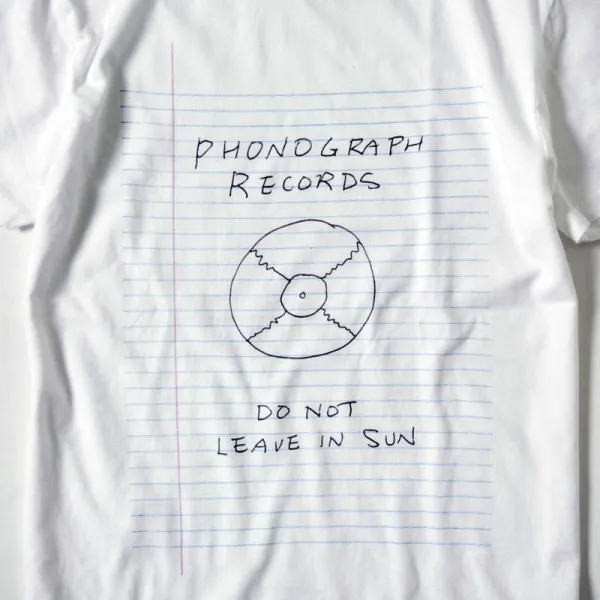 PHONOGRAPH
RECORDS
DO NOT
LEAVE IN SUN